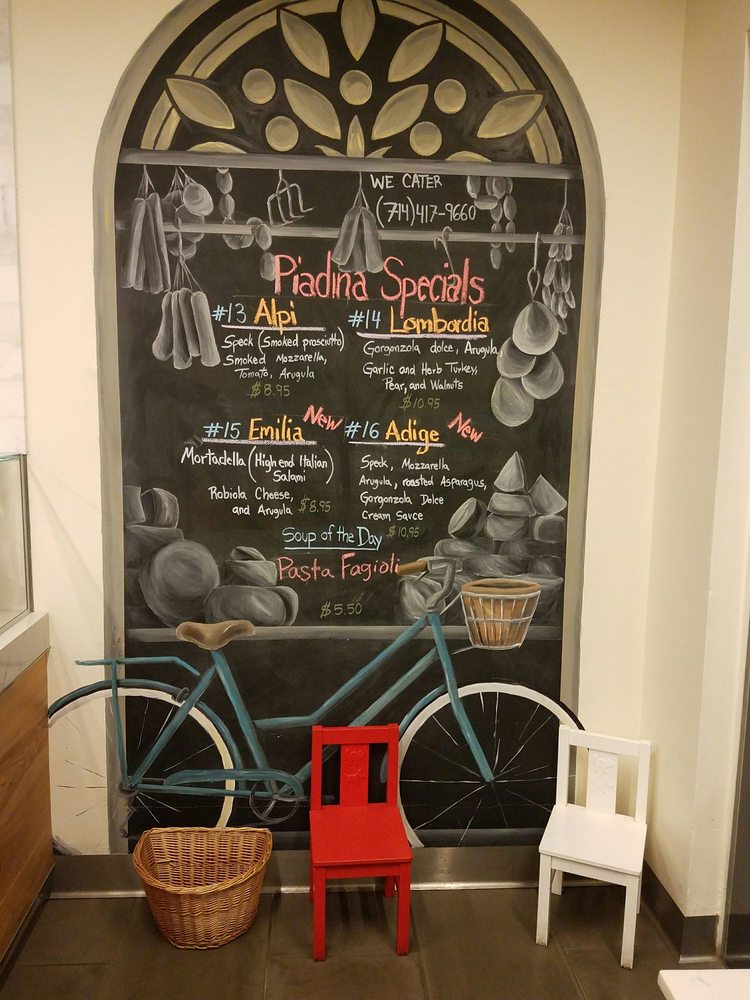 WE CATER
(714)417-9660
Piadina Specials
#13 Alpi
Speck (Smoked prosciutto)
Smoked Mozzarella,
Tomato, Arugula
$8.95
#14 Lombardia
Gorgonzola dolce, Arugula,
Garlic and Herb Turkey,
Pear, and Walnuts
$10.95
#15 Emilia New
Mortadella (High end Italian
Salami)
Robiola Cheese,
and Arugula $8.95
#16 Adige New
Speck, Mozzarella
Arugula, roasted Asparagus,
Gorgonzola Dolce
Cream Sauce
$10.95
Soup of the Day
Pasta Fagioli
$5.50